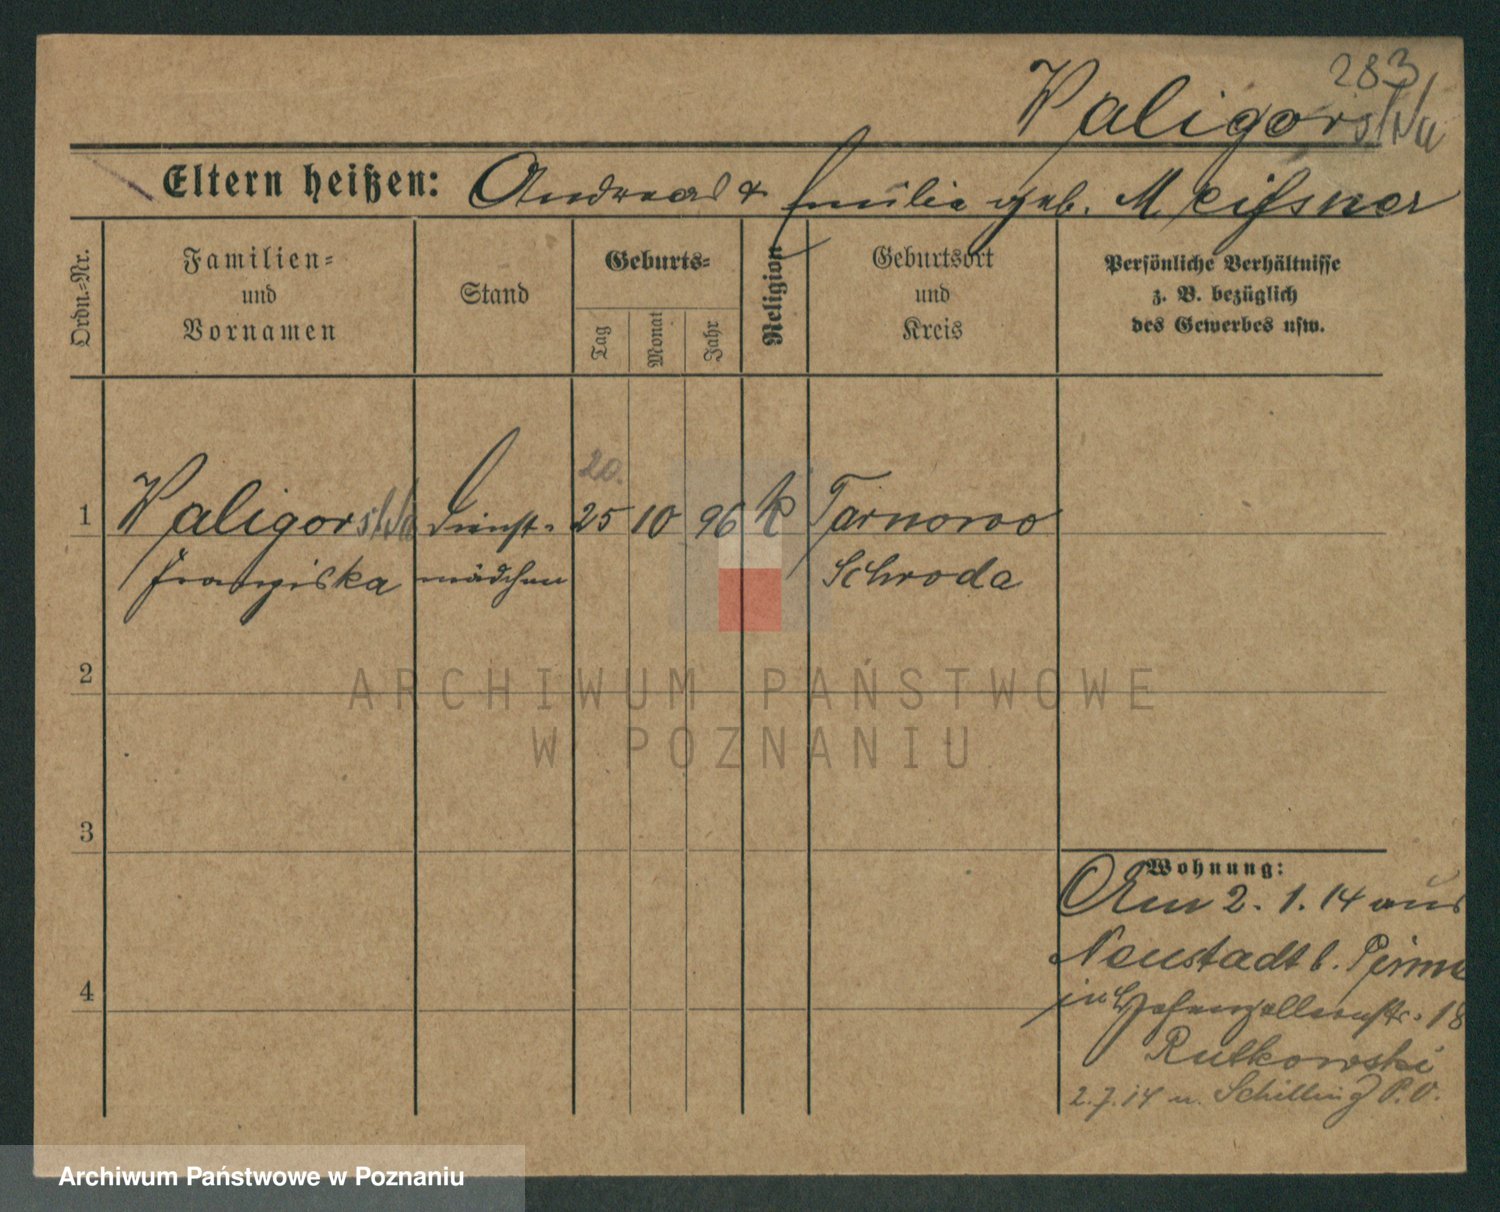 283
Waligorska
Eltern heißen: Andreas & Emilie geb. Meißner
Ordn.-Nr.
Familien-
und
Vornamen
Stand
Geburts-
Tag
Monat
Jahr
Religion
Geburtsort
und
Kreis
Persönliche Verhältnisse
z. B. bezüglich
des Gewerbes usw.
20.
1 Waligorska Dienst- 25 10 96 k Tarnowo
Franziska mädchen Schroda
2
3
4
Wohnung:
Am 2. 1. 14 aus
Neustadt b. Pinne
in Hohenzollernstr. 18
Rutkowski
2.7.14 n. Schilling P.O.
ARCHIWUM PAŃSTWOWE
W POZNANIU
Archiwum Państwowe w Poznaniu